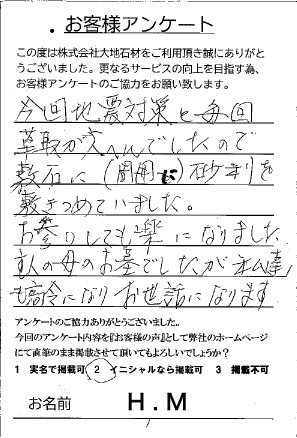 お客様アンケート
この度は株式会社大地石材をご利用頂き誠にありがと
うございました。更なるサービスの向上を目指す為、
お客様アンケートのご協力をお願い致します。
今回地震対策と毎回
草取が大へんでしたので
敷石に(周囲に)砂利を
敷きつめていました。
お参りしても楽になりました
主人の母のお墓でしたが私達
も高令になりお世話になります
アンケートのご協力ありがとうございました。
今回のアンケート内容を『お客様の声』として弊社のホームページ
にて直筆のまま掲載させて頂いてもよろしいでしょうか?
1 実名で掲載可 2 イニシャルなら掲載可 3 掲載不可
お名前 H.M